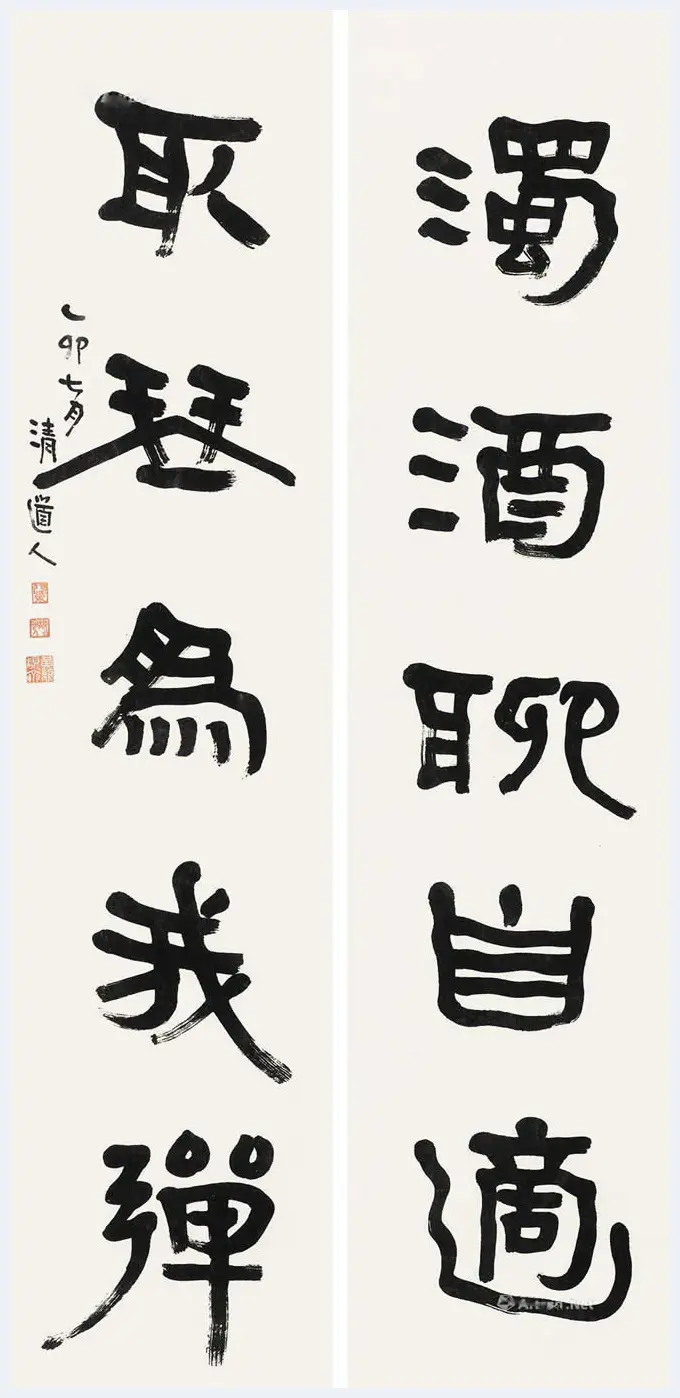 濁酒聊自適
取琴為我彈
乙卯七月
清道人
Artron.Net